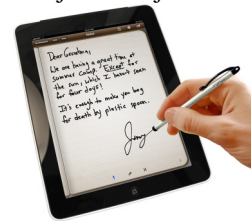 Dear Grandma,
We are having a great time at
summer camp. Except for
the sun, which I haven't seen
for four days!
It's enough to make you beg
for death by plastic spoon.